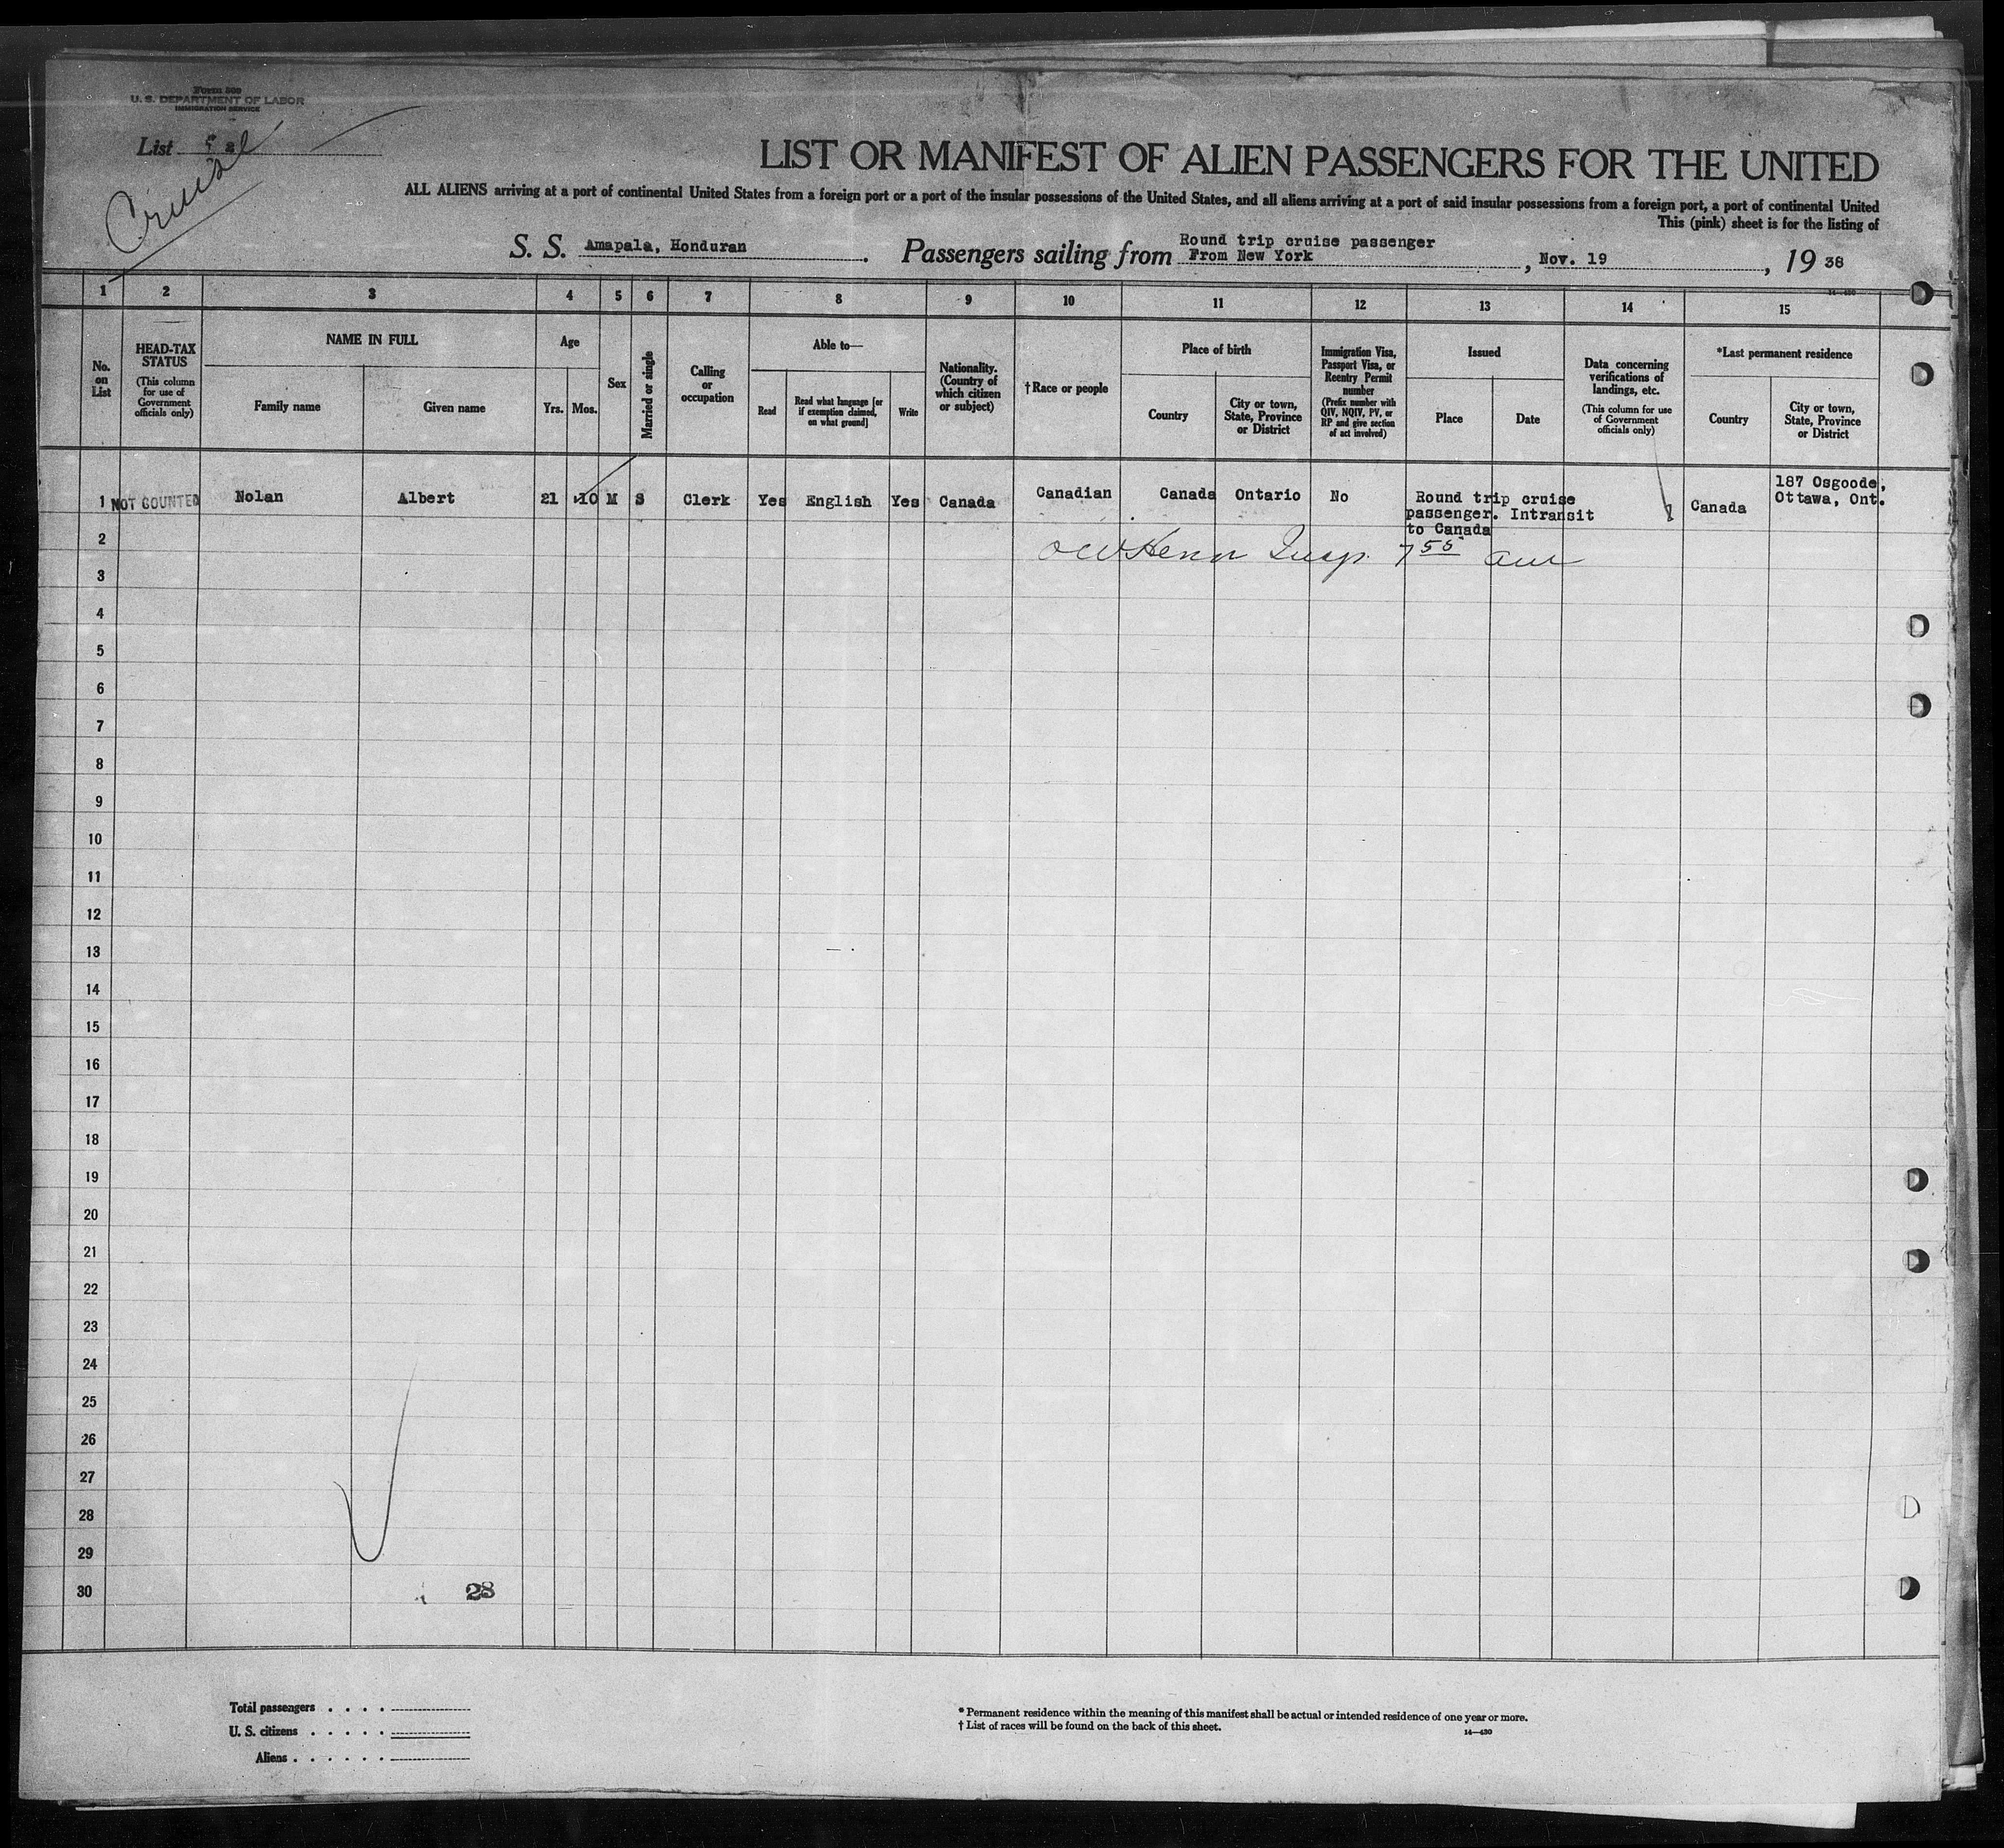 Form 500
U. S. DEPARTMENT OF LABOR
IMMIGRATION SERVICE
List 5
Cruise
LIST OR MANIFEST OF ALIEN PASSENGERS FOR THE UNITED
ALL ALIENS arriving at a port of continental United States from a foreign port or a port of the insular possessions of the United States, and all aliens arriving at a port of said insular possessions from a foreign port, a port of continental United
This (pink) sheet is for the listing of
S. S. Amapala, Honduran. Passengers sailing from Round trip cruise passenger From New York, Nov. 19, 19 38
1 2 3 4 5 6 7 8 9 10 11 12 13 14 15
No. on List
HEAD-TAX STATUS
(This column for use of Government officials only)
NAME IN FULL
Family name
Given name
Age
Yrs. Mos.
Sex
Married or single
Calling or occupation
Able to—
Read
Read what language [or if exemption claimed, on what ground]
Write
Nationality. (Country of which citizen or subject)
†Race or people
Place of birth
Country
City or town, State, Province or District
Immigration Visa, Passport Visa, or Reentry Permit number
(Prefix number with QIV, NQIV, PV, or RP and give section of act involved)
Issued
Place
Date
Data concerning verifications of landings, etc.
(This column for use of Government officials only)
*Last permanent residence
Country
City or town, State, Province or District
1 NOT COUNTED Nolan Albert 21 10 M S Clerk Yes English Yes Canada Canadian Canada Ontario No Round trip cruise passenger. Intransit to Canada Canada 187 Osgoode, Ottawa, Ont.
2
Insp. 7 55 am
3
4
5
6
7
8
9
10
11
12
13
14
15
16
17
18
19
20
21
22
23
24
25
26
27
28
29
30
28
Total passengers . . . .
U. S. citizens . . . . .
Aliens . . . . . .
* Permanent residence within the meaning of this manifest shall be actual or intended residence of one year or more.
† List of races will be found on the back of this sheet.
14—430